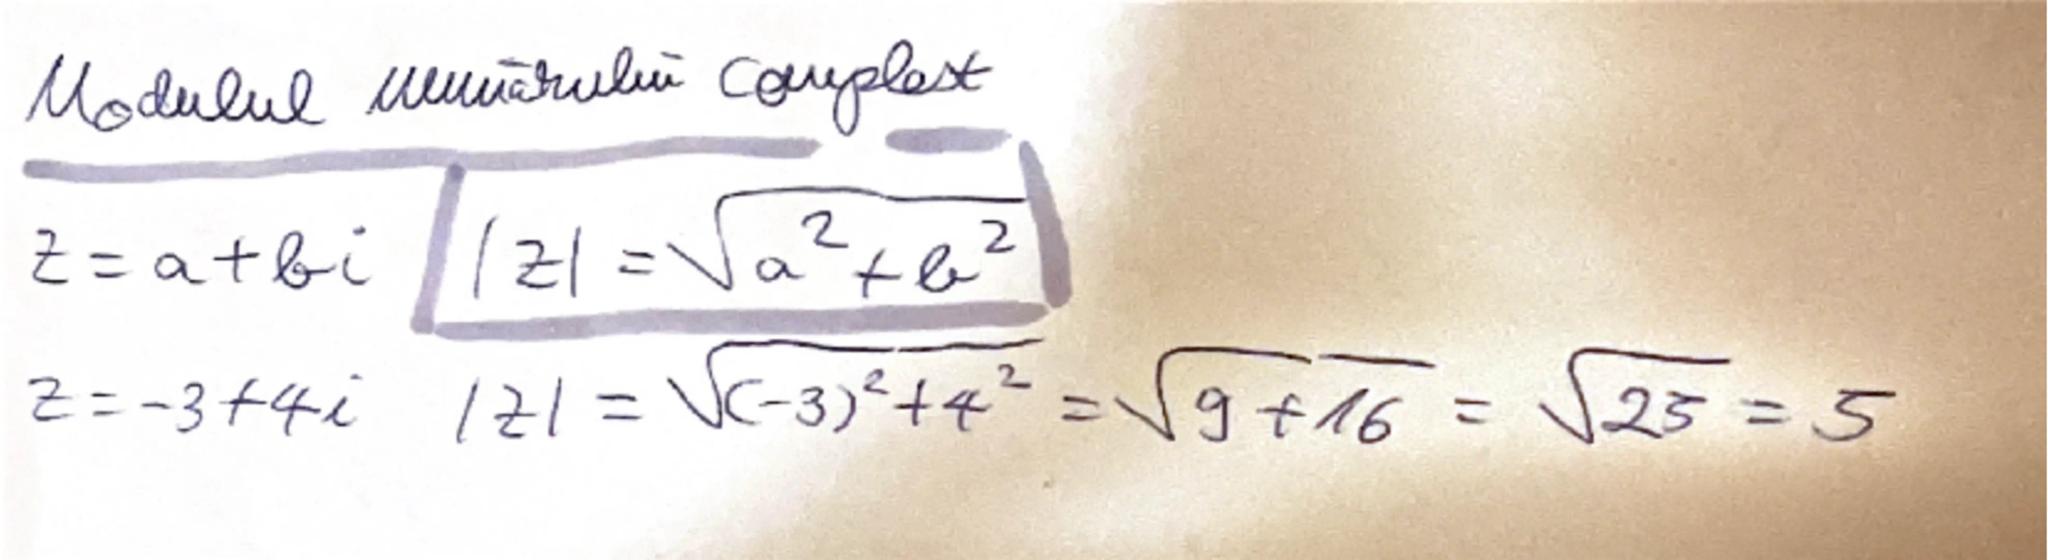 Modulul numărului complex
z = a + bi |z| = √(a² + b²)
z = -3 + 4i |z| = √((-3)² + 4²) = √(9 + 16) = √25 = 5